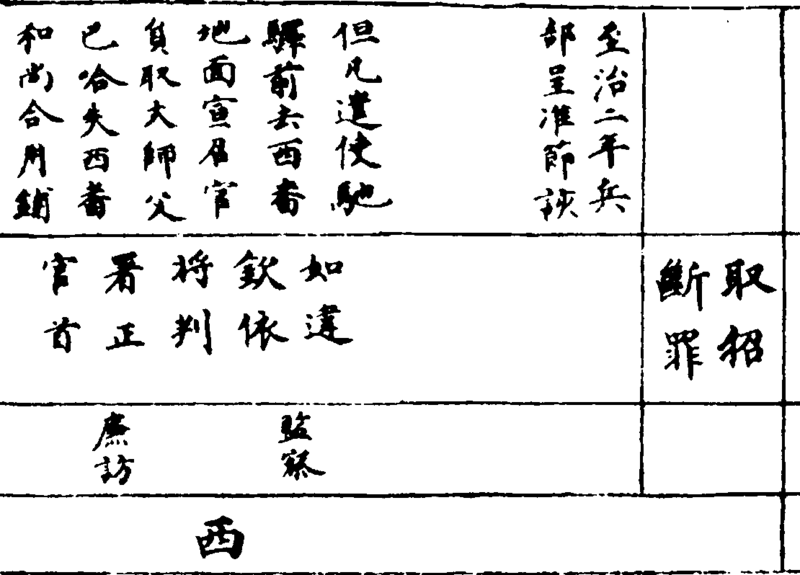 至治二年兵
部呈准節該
但凡遣使馳
驛前去西番
地面宣召官
負取大師父
巴哈失西蕃
和尚合用鋪
取招
斷罪
如違
欽依
将判
署正
官首
監察
廉訪
西